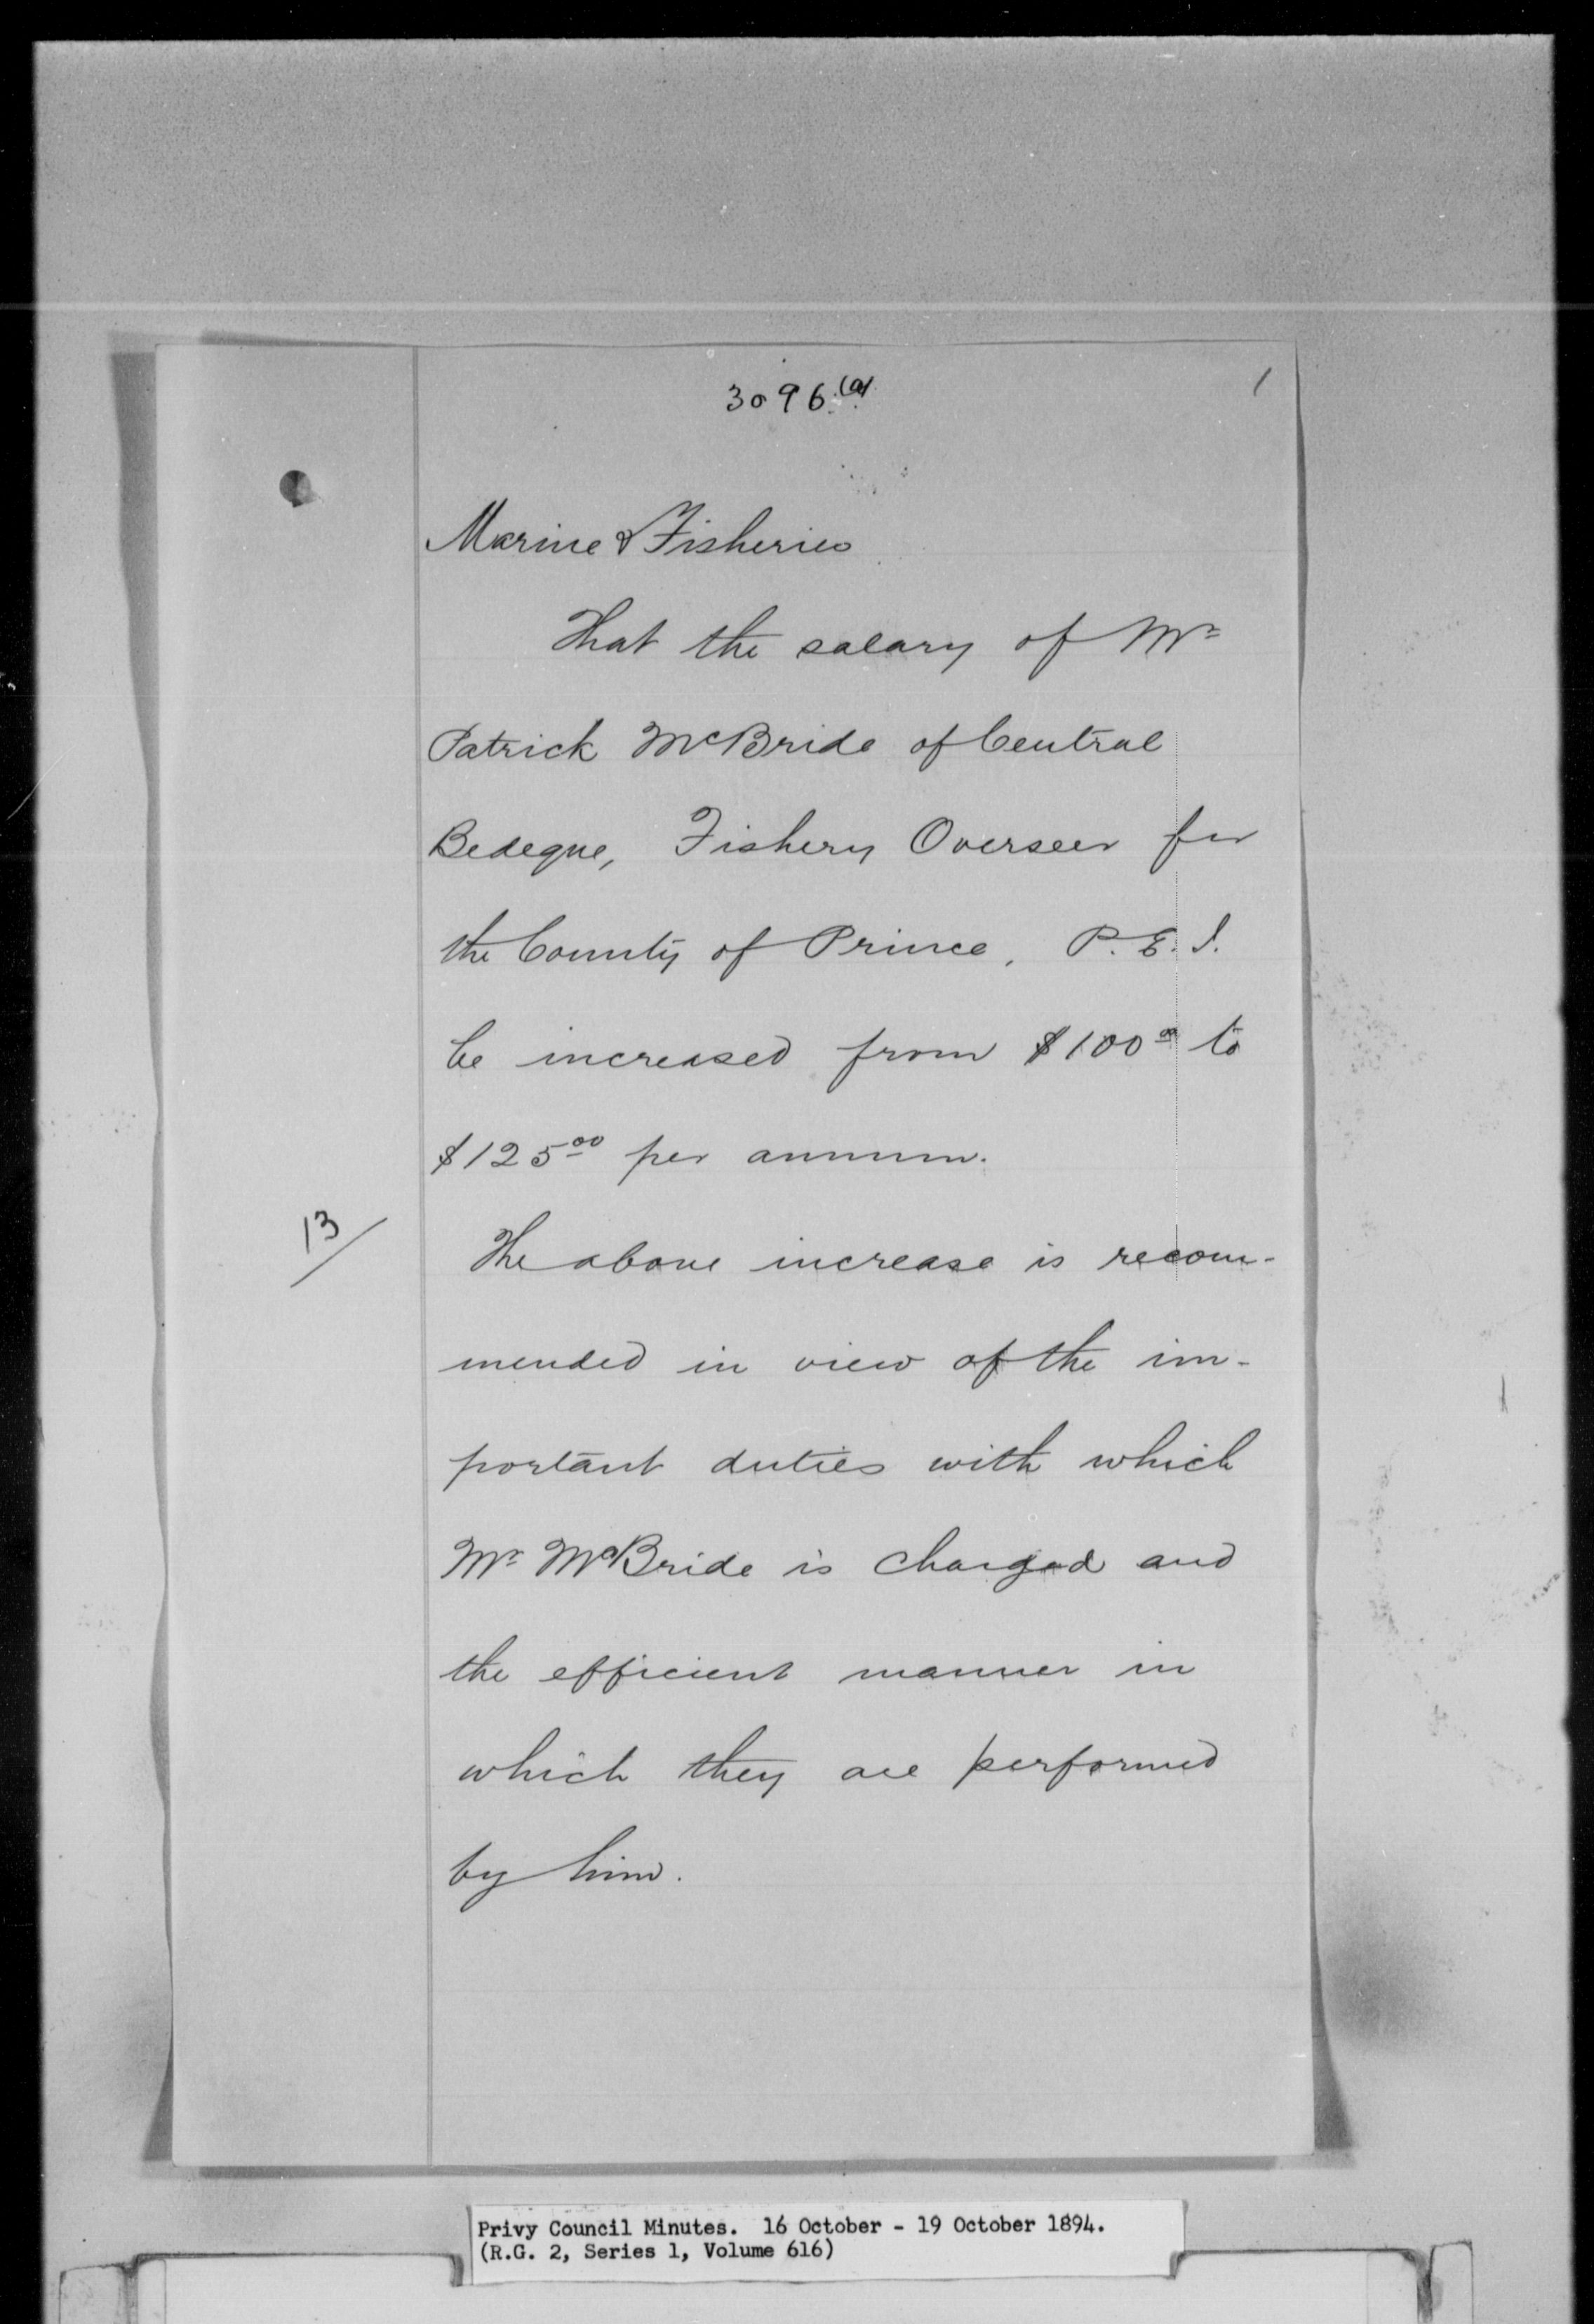 3096 (a)
1
Marine & Fisheries
That the salary of Mr
Patrick McBride of Central
Bedeque, Fishery Overseer for
the County of Prince, P.E.I.
be increased from $100.00 to
$125.00 per annum.
13/
The above increase is recom-
mended in view of the im-
portant duties with which
Mr McBride is charged and
the efficient manner in
which they are performed
by him.
Privy Council Minutes. 16 October - 19 October 1894.
(R.G. 2, Series 1, Volume 616)